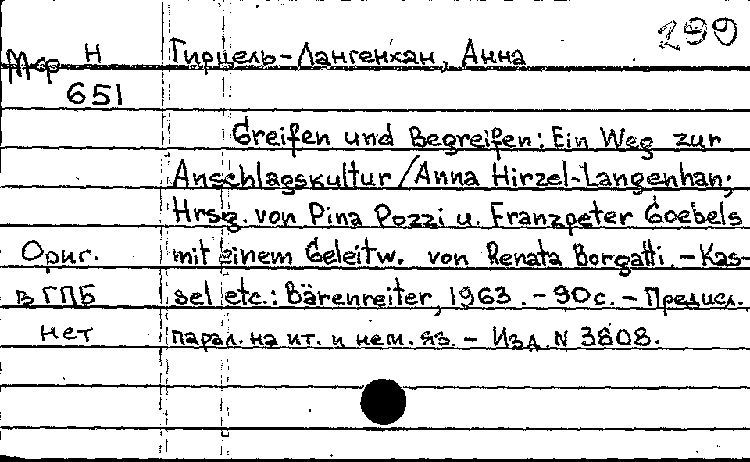 299
Мср Н Гирцель-Лангенхан, Анна
651
Greifen und Begreifen: Ein Weg zur
Anschlagskultur / Anna Hirzel-Langenhan;
Hrsg. von Pina Pozzi u. Franzpeter Goebels
Ориг. mit einem Geleitw. von Renata Borgatti. - Kas-
в ГПБ sel etc.: Bärenreiter, 1963. - 90 с. - Предисл.
нет парал. на ит. и нем. яз. - Изд. N 3808.